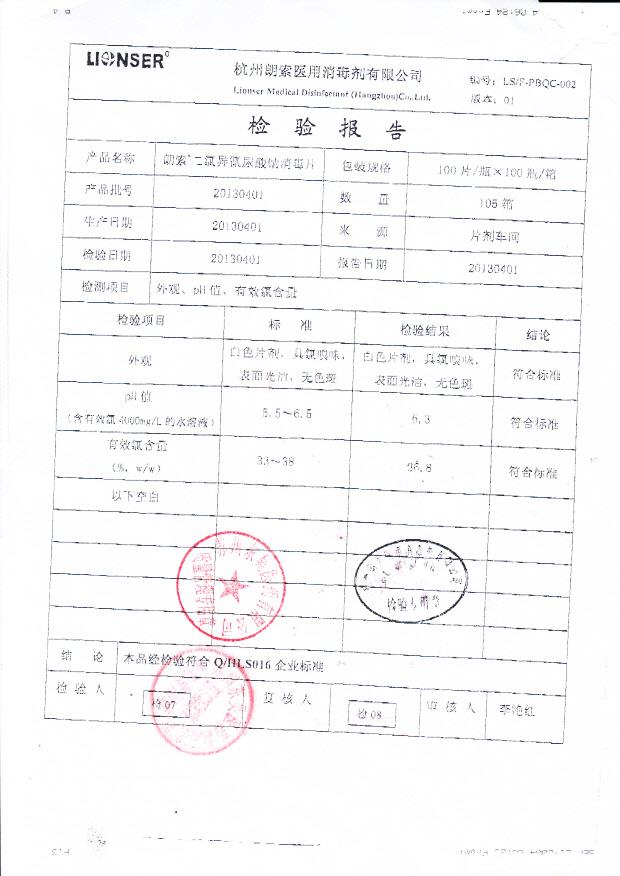 LIONSER
杭州朗索医用消毒剂有限公司
编号：LS/F-PBQC-002
Lionser Medical Disinfectant (Hangzhou)Co.,Ltd.
版本：01
检 验 报 告
产品名称 朗索 二氯异氰尿酸钠消毒片 包装规格 100片/瓶×100瓶/箱
产品批号 20130401 数 量 105箱
生产日期 20130401 来 源 片剂车间
检验日期 20130401 报告日期 20130401
检测项目 外观、pH值、有效氯含量
检验项目 标 准 检验结果 结论
外观 白色片剂，具氯嗅味， 白色片剂，具氯嗅味， 符合标准
表面光洁，无色斑 表面光洁，无色斑
pH值
（含有效氯4000mg/L的水溶液） 5.5～6.5 6.3 符合标准
有效氯含量
（%，w/w） 33～38 36.8 符合标准
以下空白
检验专用章
结 论 本品经检验符合Q/HLS016企业标准
检 验 人 检07 复 核 人 检08 审 核 人 李艳红